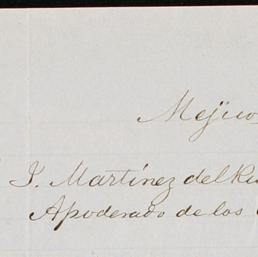 Mejico
J. Martínez del Rio
Apoderado de los